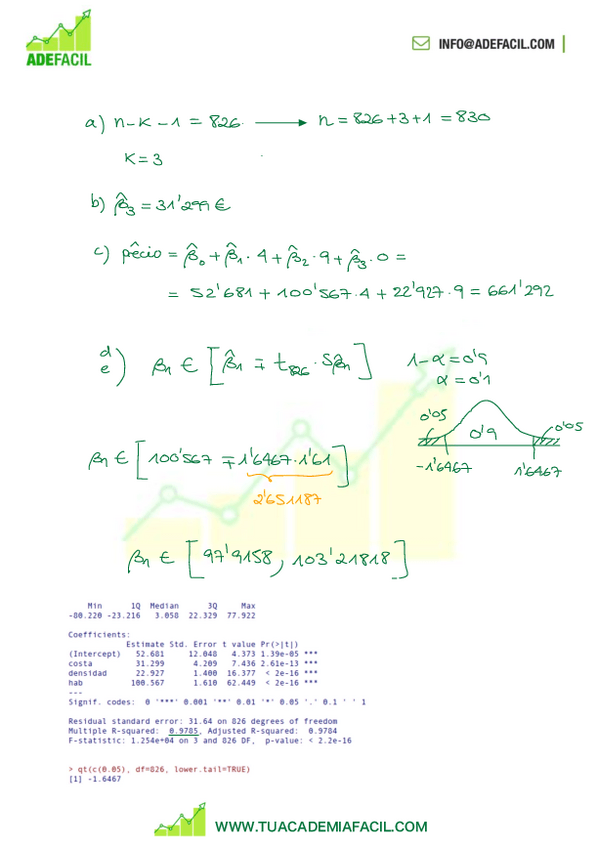 ADEFACIL
INFO@ADEFACIL.COM
a) n-k-1 = 826 → n = 826+3+1 = 830
k = 3
b) β̂₃ = 31'299 €
c) prêcio = β̂₀ + β̂₁ · 4 + β̂₂ · 9 + β̂₃ · 0 =
= 52'681 + 100'567 · 4 + 22'927 · 9 = 661'292
d
e ) β₁ ∈ [ β̂₁ ∓ t₈₂₆ · Sβ̂₁ ] 1-α = 0'9
α = 0'1
0'05 0'9 0'05
-1'6467 1'6467
β₁ ∈ [ 100'567 ∓ 1'6467 · 1'61 ]
2'651187
β₁ ∈ [ 97'9158 , 103'21818 ]
Min 1Q Median 3Q Max
-80.220 -23.216 3.058 22.329 77.922
Coefficients:
Estimate Std. Error t value Pr(>|t|)
(Intercept) 52.681 12.048 4.373 1.39e-05 ***
costa 31.299 4.209 7.436 2.61e-13 ***
densidad 22.927 1.400 16.377 < 2e-16 ***
hab 100.567 1.610 62.449 < 2e-16 ***
---
Signif. codes: 0 '***' 0.001 '**' 0.01 '*' 0.05 '.' 0.1 ' ' 1
Residual standard error: 31.64 on 826 degrees of freedom
Multiple R-squared: 0.9785, Adjusted R-squared: 0.9784
F-statistic: 1.254e+04 on 3 and 826 DF, p-value: < 2.2e-16
> qt(c(0.05), df=826, lower.tail=TRUE)
[1] -1.6467
WWW.TUACADEMIAFACIL.COM